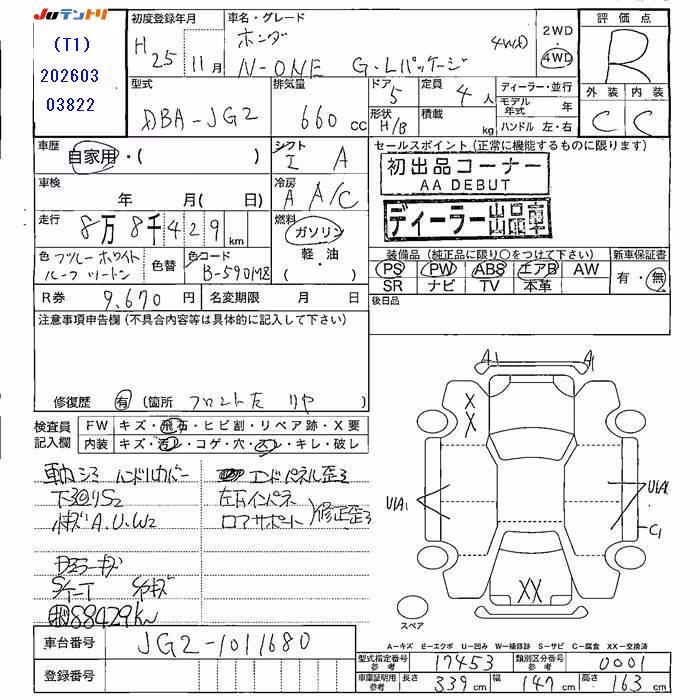 JUテントリ
(T1)
202603
03822
初度登録年月
H25年11月
車名・グレード
ホンダ
N-ONE G・Lパッケージ 4WD
2WD
4WD
評価点
R
外装 内装
C C
型式
DBA-JG2
排気量
660cc
ドア
5
定員
4人
形状
H/B
積載
kg
ディーラー・並行
モデル年式 年
ハンドル 左・右
車歴
自家用・( )
シフト
I A
セールスポイント(正常に機能するものに限ります)
初出品コーナー
AA DEBUT
ディーラー出品車
車検
年 月( 日)
冷房
A A/C
走行
8万8千429km
燃料
ガソリン
軽・油
( )
色
ブルーホワイト
ルーフツートン
色替
色コード
B-590M8
装備品(純正品に限り○をつけて下さい)
PS PW ABS エアB AW
SR ナビ TV 本革
新車保証書
有・無
R券 9,670円
名変期限 月 日
後日品
注意事項申告欄(不具合内容等は具体的に記入して下さい)
修復歴 有 (箇所 フロント左 リヤ )
検査員
記入欄
FW キズ・飛石・ヒビ割・リペア跡・X要
内装 キズ・汚レ・コゲ・穴・スレ・キレ・破レ
ハンドルカバー
エンドパネル歪ミ
下回りS2
左右インパネ
A.U.W2
ロアサポート
修正歪ミ
88429km
A1 A1
X
X
UA1
UA1
C1
XX
スペア
A-キズ E-エクボ U-凹み W-補修跡 S-サビ C-腐食 XX-交換済
車台番号 JG2-1011680
登録番号
型式指定番号
参考
17453
類別区分番号
参考
0001
車庫証明用
参考
長さ 339cm 幅 147cm 高さ 163cm